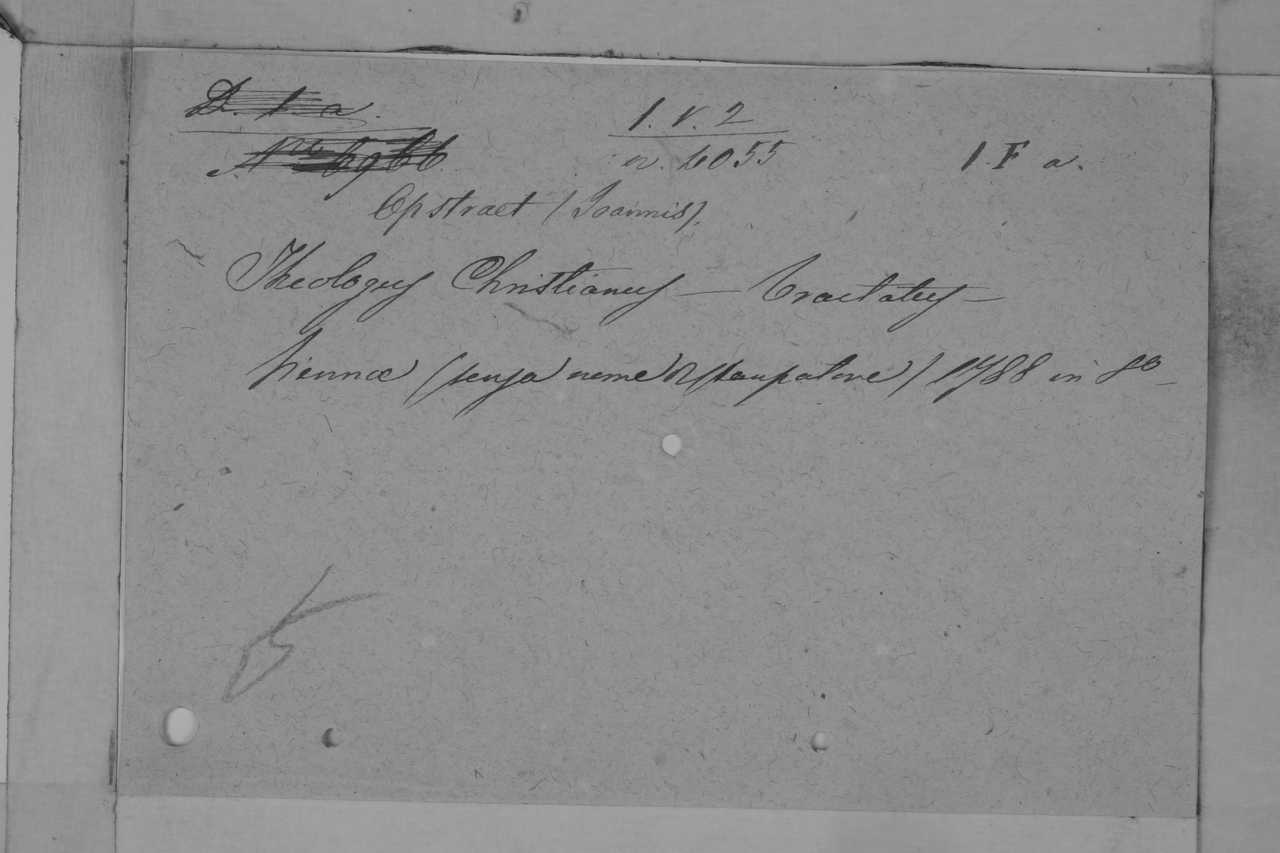 D. 1 a.
1. V. 2
No 6966
n. 6055
1. F a.
Opstraet (Joannis).
Theologus Christianus — Tractatus —
Viennae (senza nome di stampatore) 1788 in 8o —